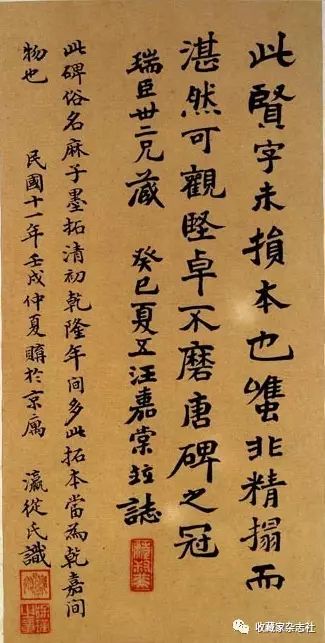 此賢字未損本也雖非精搨而
湛然可觀堅卓不磨唐碑之冠
瑞臣世二兄藏 癸巳夏五汪嘉棠并誌
此碑俗名麻子墨拓清初乾隆年間多此拓本當為乾嘉間
物也 民國十一年壬戌仲夏購於京寓 瀛從氏識
收藏家杂志社